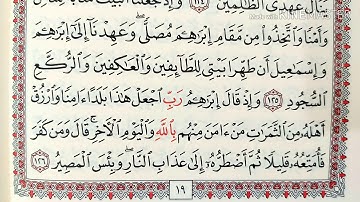 يَنَالُ عَهْدِي ٱلظَّٰلِمِينَ ١٢٤ وَإِذْ جَعَلْنَا ٱلْبَيْتَ
وَأَمْنًا وَٱتَّخِذُوا۟ مِن مَّقَامِ إِبْرَٰهِـۧمَ مُصَلًّى ۖ وَعَهِدْنَآ إِلَىٰٓ إِبْرَٰهِـۧمَ
وَإِسْمَٰعِيلَ أَن طَهِّرَا بَيْتِىَ لِلطَّآئِفِينَ وَٱلْعَٰكِفِينَ وَٱلرُّكَّعِ
ٱلسُّجُودِ ١٢٥ وَإِذْ قَالَ إِبْرَٰهِـۧمُ رَبِّ ٱجْعَلْ هَٰذَا بَلَدًا ءَامِنًا وَٱرْزُقْ
أَهْلَهُۥ مِنَ ٱلثَّمَرَٰتِ مَنْ ءَامَنَ مِنْهُم بِٱللَّهِ وَٱلْيَوْمِ ٱلْـَٔاخِرِ ۖ قَالَ وَمَن كَفَرَ
فَأُمَتِّعُهُۥ قَلِيلًا ثُمَّ أَضْطَرُّهُۥٓ إِلَىٰ عَذَابِ ٱلنَّارِ ۖ وَبِئْسَ ٱلْمَصِيرُ ١٢٦
١٩